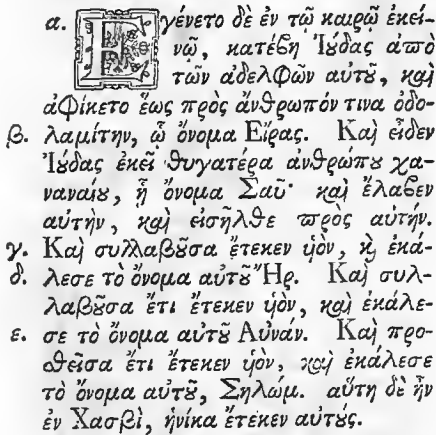 α. Ἐγένετο δὲ ἐν τῷ καιρῷ ἐκεί-
νῳ, κατέβη Ἰούδας ἀπὸ
τῶν ἀδελφῶν αὐτοῦ, καὶ
ἀφίκετο ἕως πρὸς ἄνθρωπόν τινα ὀδο-
β. λαμίτην, ᾧ ὄνομα Εἵρας. Καὶ εἶδεν
Ἰούδας ἐκεῖ θυγατέρα ἀνθρώπου χα-
ναναίου, ᾗ ὄνομα Σαυ· καὶ ἔλαβεν
αὐτὴν, καὶ εἰσῆλθε πρὸς αὐτήν.
γ. Καὶ συλλαβοῦσα ἔτεκεν υἱὸν, καὶ ἐκά-
δ. λεσε τὸ ὄνομα αὐτοῦ Ἤρ. Καὶ συλ-
λαβοῦσα ἔτι ἔτεκεν υἱὸν, καὶ ἐκάλε-
ε. σε τὸ ὄνομα αὐτοῦ Αὐνάν. Καὶ προ-
θεῖσα ἔτι ἔτεκεν υἱὸν, καὶ ἐκάλεσε
τὸ ὄνομα αὐτοῦ, Σηλώμ. αὕτη δὲ ἦν
ἐν Χασβὶ, ἡνίκα ἔτεκεν αὐτούς.